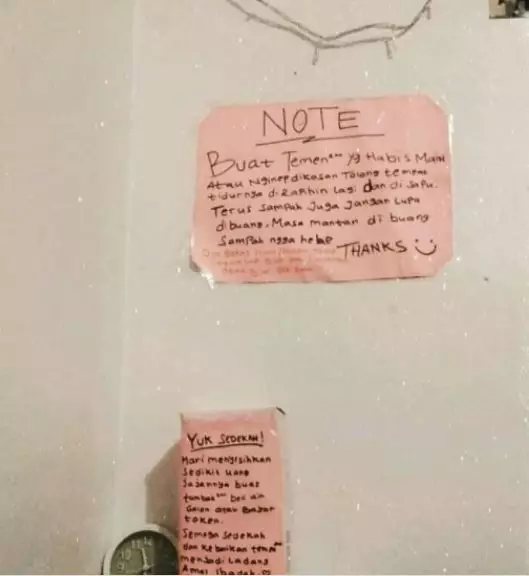 NOTE
Buat Temen" yg Habis Main
Atau Nginep dikosan Tolong tempat
tidurnya dirapihin lagi dan di sapu.
Terus sampah juga jangan lupa
dibuang. Masa mantan di buang
Sampah ngga hehe
THANKS
YUK SEDEKAH!
Mari menyisihkan
Sedikit uang
Jajannya buat
tambah" beli air
Galon atau Bayar
token.
Semoga sedekah
dan kebaikan temen"
menjadi Ladang
Amal ibadah